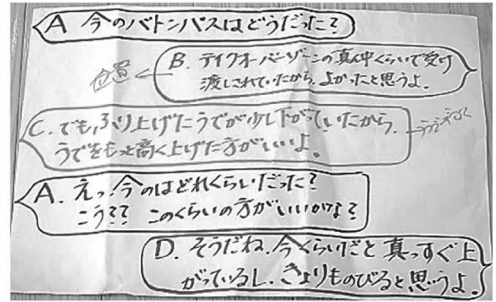 A 今のバトンパスはどうだった?
B. テイクオーバーゾーンの真ん中くらいで受け
渡しされていたから、よかったと思うよ。
位置
C. でも、ふり上げたうでが少し下がっていたから、
うでをもっと高く上げた方がいいよ。
A. えっ、今のはどれくらいだった?
こう?? このくらいの方がいいかな?
D. そうだね。今くらいだと真っすぐ上
がっているし、きょりものびると思うよ。